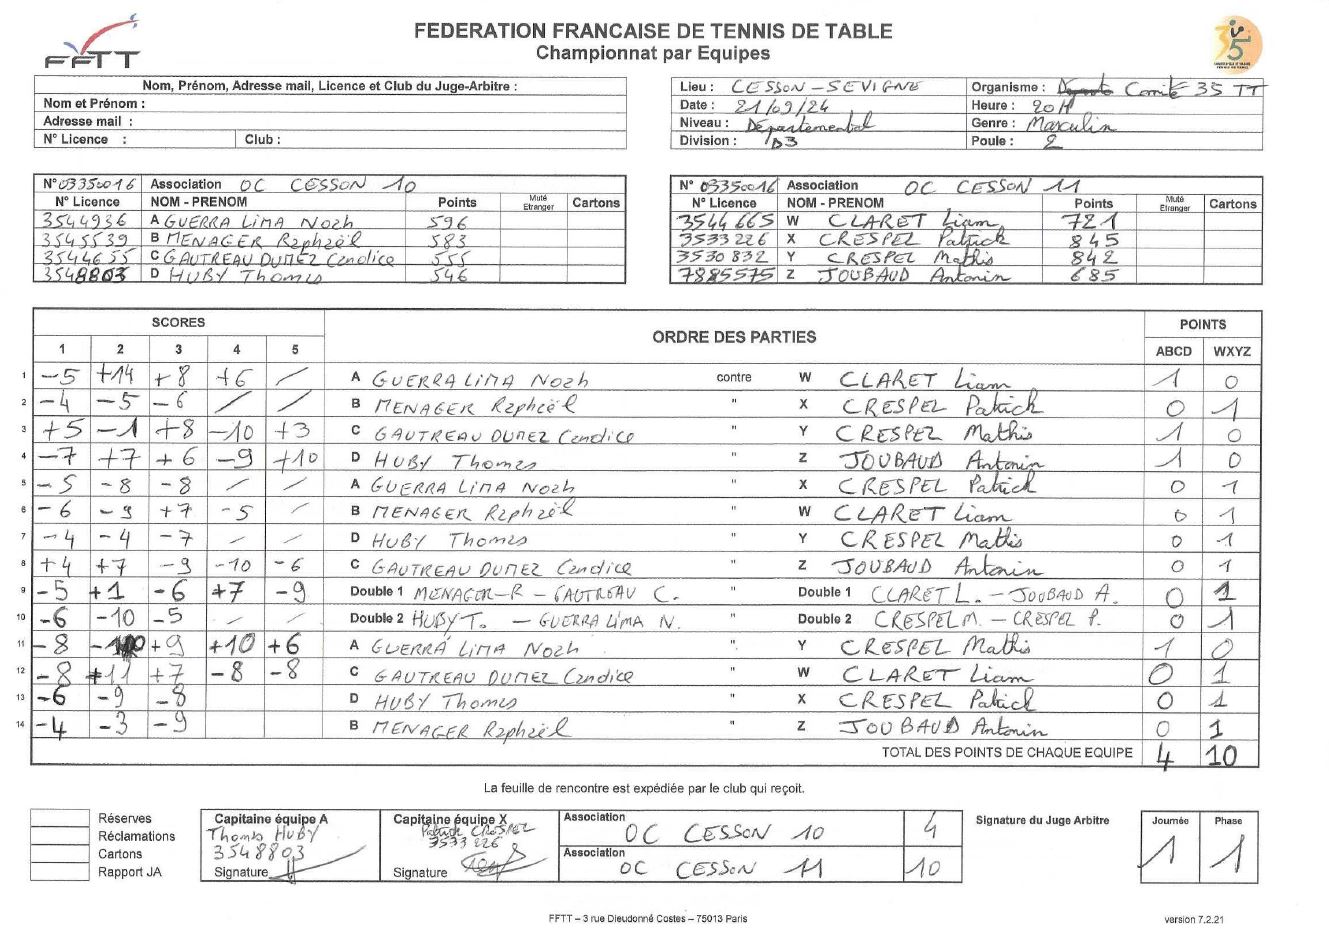 FEDERATION FRANCAISE DE TENNIS DE TABLE
Championnat par Equipes
FFTT
Nom, Prénom, Adresse mail, Licence et Club du Juge-Arbitre :
Nom et Prénom :
Adresse mail :
N° Licence : Club :
Lieu : CESSON - SEVIGNE Organisme : Comité 35 TT
Date : 21/09/24 Heure : 20H
Niveau : Départemental Genre : Masculin
Division : D3 Poule : 2
N° 03350016 Association OC CESSON 10
N° Licence NOM - PRENOM Points Muté Etranger Cartons
3544936 A GUERRA LIMA Noah 596
3545539 B MENAGER Raphaël 583
3544655 C GAUTREAU DUMEZ Candice 555
3548803 D HUBY Thomas 546
N° 03350016 Association OC CESSON 11
N° Licence NOM - PRENOM Points Muté Etranger Cartons
3544665 W CLARET Liam 721
3533226 X CRESPEL Patrick 845
3530832 Y CRESPEL Mathis 842
7885575 Z JOUBAUD Antonin 685
SCORES ORDRE DES PARTIES POINTS
1 2 3 4 5 ABCD WXYZ
1 -5 +14 +8 +6 / A GUERRA LIMA Noah contre W CLARET Liam 1 0
2 -4 -5 -6 / / B MENAGER Raphaël " X CRESPEL Patrick 0 1
3 +5 -1 +8 -10 +3 C GAUTREAU DUMEZ Candice " Y CRESPEL Mathis 1 0
4 -7 +7 +6 -9 +10 D HUBY Thomas " Z JOUBAUD Antonin 1 0
5 -5 -8 -8 / / A GUERRA LIMA Noah " X CRESPEL Patrick 0 1
6 -6 -9 +7 -5 / B MENAGER Raphaël " W CLARET Liam 0 1
7 -4 -4 -7 / / D HUBY Thomas " Y CRESPEL Mathis 0 1
8 +4 +7 -9 -10 -6 C GAUTREAU DUMEZ Candice " Z JOUBAUD Antonin 0 1
9 -5 +1 -6 +7 -9 Double 1 MENAGER-R - GAUTREAU C. " Double 1 CLARET L. - JOUBAUD A. 0 1
10 -6 -10 -5 / / Double 2 HUBY T. - GUERRA LIMA N. " Double 2 CRESPEL M. - CRESPEL P. 0 1
11 -8 +9 +10 +6 A GUERRA LIMA Noah " Y CRESPEL Mathis 1 0
12 -8 +11 +7 -8 -8 C GAUTREAU DUMEZ Candice " W CLARET Liam 0 1
13 -6 -9 -8 D HUBY Thomas " X CRESPEL Patrick 0 1
14 -4 -3 -9 B MENAGER Raphaël " Z JOUBAUD Antonin 0 1
TOTAL DES POINTS DE CHAQUE EQUIPE 4 10
La feuille de rencontre est expédiée par le club qui reçoit.
Réserves
Réclamations
Cartons
Rapport JA
Capitaine équipe A
Thomas HUBY
3548803
Signature
Capitaine équipe X
Patrick CRESPEL
3533226
Signature
Association OC CESSON 10 4
Association OC CESSON 11 10
Signature du Juge Arbitre
Journée Phase
1 1
FFTT – 3 rue Dieudonné Costes – 75013 Paris
version 7.2.21